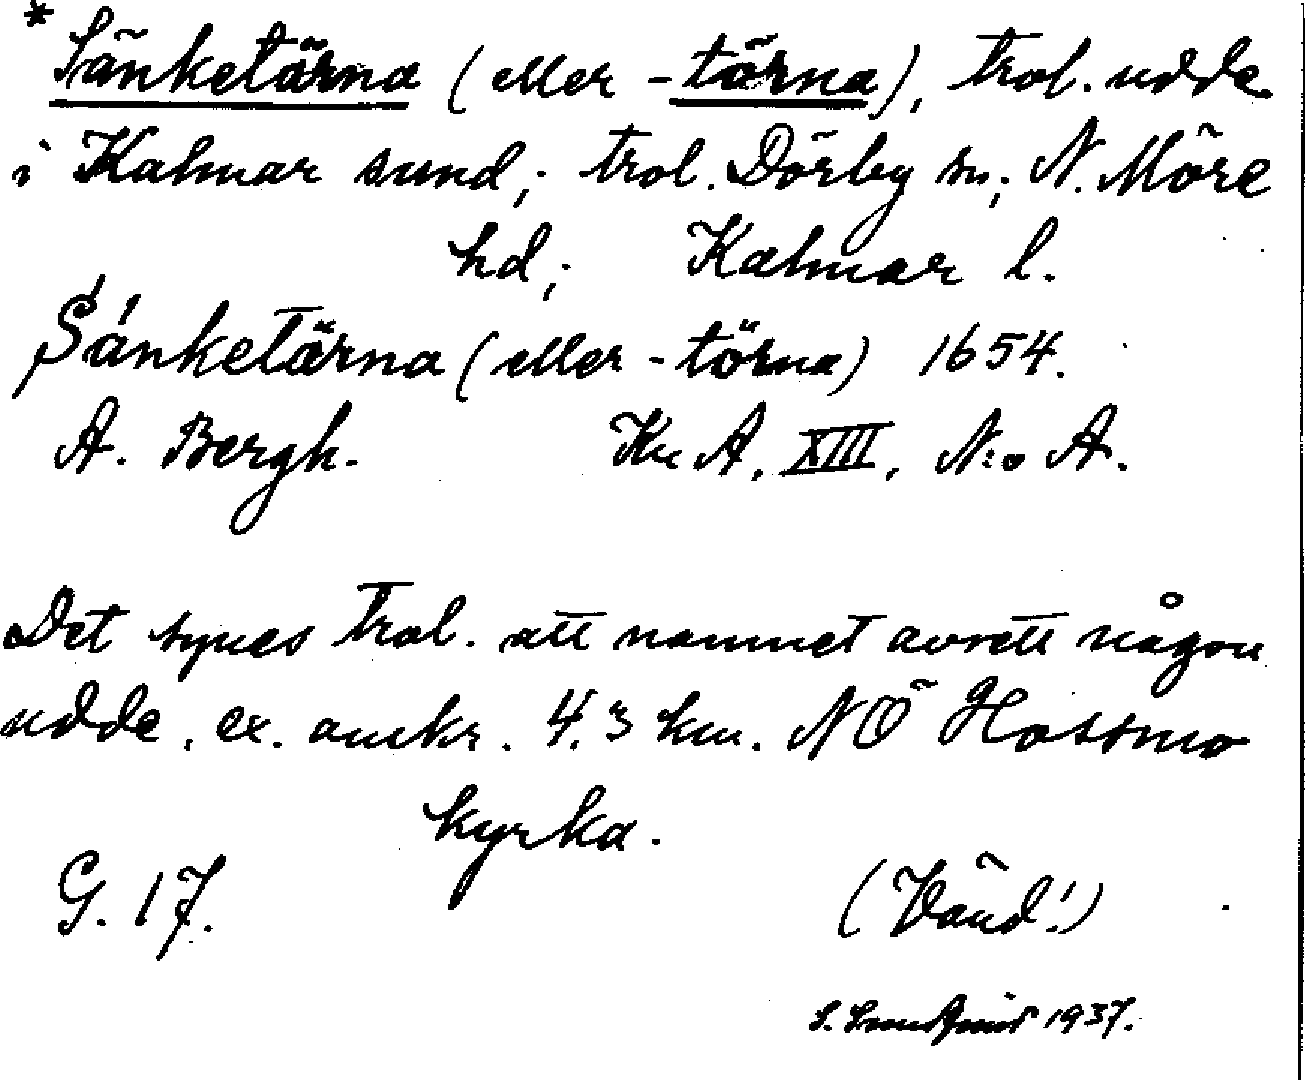 * Sänketärna (eller -törna), trol. udde
i Kalmar sund; trol. Dörby sn; N. Möre
hd; Kalmar l.
Sánketärna (eller -törna) 1654.
A. Bergh. Ku A. XIII, N:o A.
Det synes trol. att namnet avsett någon
udde, ex. omkr. 4.3 km. NÖ Hossmo
kyrka.
G. 17. (Vänd!)
S. 1937.